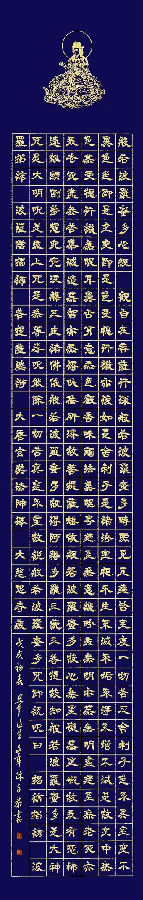 般若波羅蜜多心經 觀自在菩薩行深般若波羅蜜多時照見五蘊皆空度一切苦厄舍利子色不異空空不
異色色即是空空即是色受想行識亦復如是舍利子是諸法空相不生不滅不垢不淨不增不減是故空中無
色無受想行識無眼耳鼻舌身意無色聲香味觸法無眼界乃至無意識界無無明亦無無明盡乃至無老死亦
無老死盡無苦集滅道無智亦無得以無所得故菩提薩埵依般若波羅蜜多故心無罣礙無罣礙故無有恐怖
遠離顛倒夢想究竟涅槃三世諸佛依般若波羅蜜多故得阿耨多羅三藐三菩提故知般若波羅蜜多是大神
咒是大明咒是無上咒是無等等咒能除一切苦真實不虛故說般若波羅蜜多咒即說咒曰 揭諦揭諦 波
羅揭諦 波羅僧揭諦 菩提薩婆訶 大唐玄奘法師譯 大慈恩寺藏